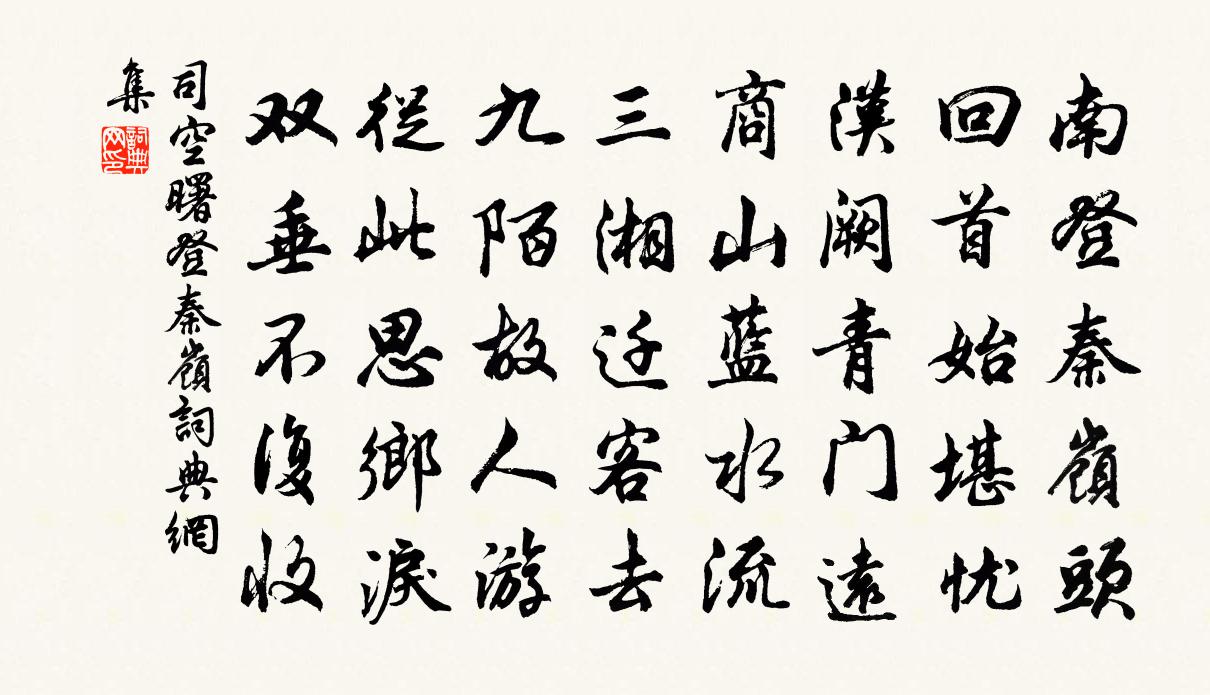 南登秦嶺頭
回首始堪忧
漢阙青门遠
商山藍水流
三湘迁客去
九陌故人游
從此思鄉淚
双垂不復收
司空曙登秦嶺詞典網
集
詞典网印